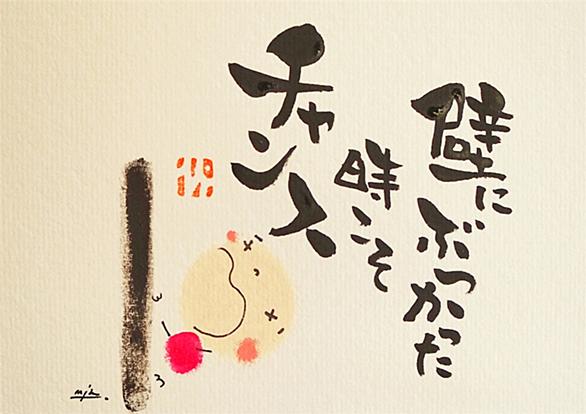 壁に
ぶつかった
時こそ
チャンス